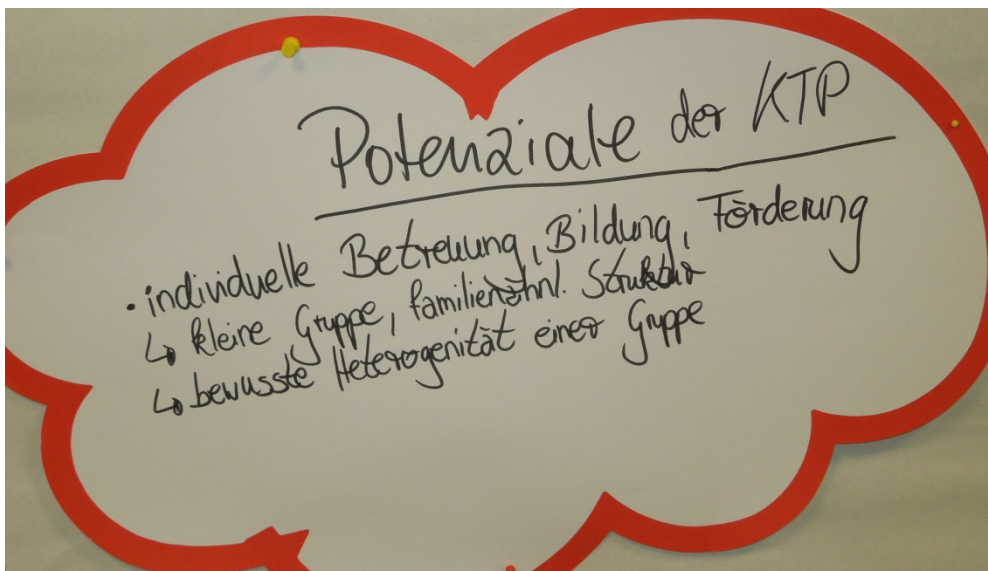 Potenziale der KTP
• individuelle Betreuung, Bildung, Förderung
↳ kleine Gruppe, familienähnl. Struktur
↳ bewusste Heterogenität einer Gruppe